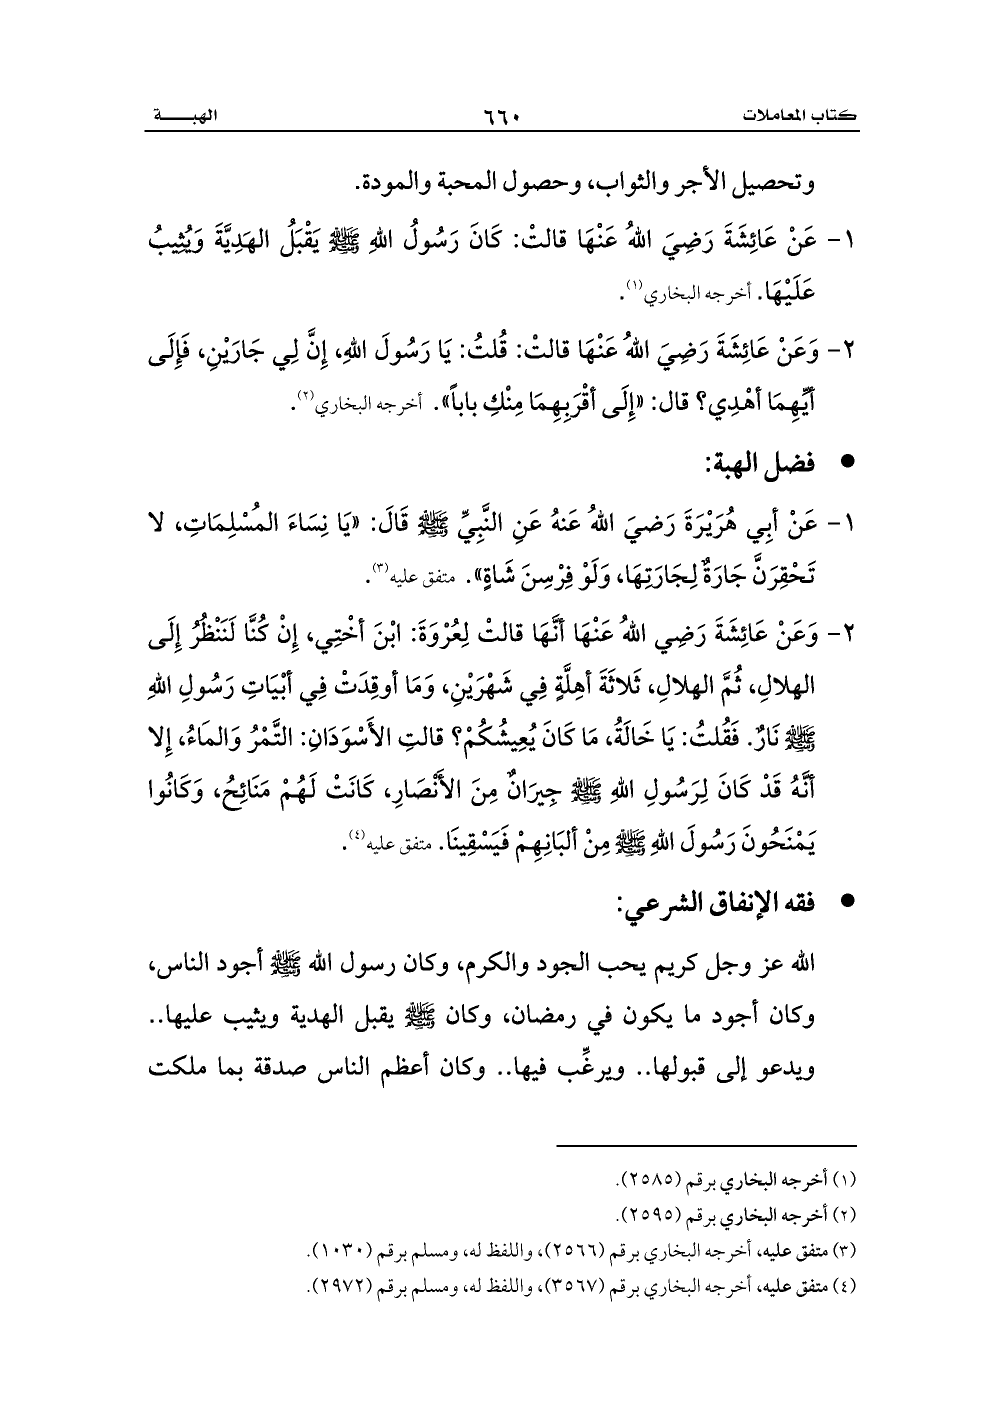 كتاب المعاملات ٦٦٠ الهبـــــة
وتحصيل الأجر والثواب، وحصول المحبة والمودة.
١- عَنْ عَائِشَةَ رَضِيَ اللهُ عَنْهَا قالتْ: كَانَ رَسُولُ اللهِ ﷺ يَقْبَلُ الهَدِيَّةَ وَيُثِيبُ
عَلَيْهَا. أخرجه البخاري(١).
٢- وَعَنْ عَائِشَةَ رَضِيَ اللهُ عَنْهَا قالتْ: قُلتُ: يَا رَسُولَ اللهِ، إنَّ لِي جَارَيْنِ، فَإلَى
أيِّهِمَا أهْدِي؟ قال: «إلَى أقْرَبِهِمَا مِنْكِ باباً». أخرجه البخاري(٢).
● فضل الهبة:
١- عَنْ أبِي هُرَيْرَةَ رَضيَ اللهُ عَنهُ عَنِ النَّبِيِّ ﷺ قَالَ: «يَا نِسَاءَ المُسْلِمَاتِ، لا
تَحْقِرَنَّ جَارَةٌ لِجَارَتِهَا، وَلَوْ فِرْسِنَ شَاةٍ». متفق عليه(٣).
٢- وَعَنْ عَائِشَةَ رَضِي اللهُ عَنْهَا أنَّهَا قالتْ لِعُرْوَةَ: ابْنَ أخْتِي، إنْ كُنَّا لَنَنْظُرُ إلَى
الهلالِ، ثُمَّ الهلالِ، ثَلاثَةَ أهِلَّةٍ فِي شَهْرَيْنِ، وَمَا أوقِدَتْ فِي أبْيَاتِ رَسُولِ اللهِ
ﷺ نَارٌ. فَقُلتُ: يَا خَالَةُ، مَا كَانَ يُعِيشُكُمْ؟ قالتِ الأَسْوَدَانِ: التَّمْرُ وَالمَاءُ، إلا
أنَّهُ قَدْ كَانَ لِرَسُولِ اللهِ ﷺ جِيرَانٌ مِنَ الأَنْصَارِ، كَانَتْ لَهُمْ مَنَائِحُ، وَكَانُوا
يَمْنَحُونَ رَسُولَ اللهِ ﷺ مِنْ ألبَانِهِمْ فَيَسْقِينَا. متفق عليه(٤).
● فقه الإنفاق الشرعي:
الله عز وجل كريم يحب الجود والكرم، وكان رسول الله ﷺ أجود الناس،
وكان أجود ما يكون في رمضان، وكان ﷺ يقبل الهدية ويثيب عليها..
ويدعو إلى قبولها.. ويرغِّب فيها.. وكان أعظم الناس صدقة بما ملكت
(١) أخرجه البخاري برقم (٢٥٨٥).
(٢) أخرجه البخاري برقم (٢٥٩٥).
(٣) متفق عليه، أخرجه البخاري برقم (٢٥٦٦)، واللفظ له، ومسلم برقم (١٠٣٠).
(٤) متفق عليه، أخرجه البخاري برقم (٣٥٦٧)، واللفظ له، ومسلم برقم (٢٩٧٢).